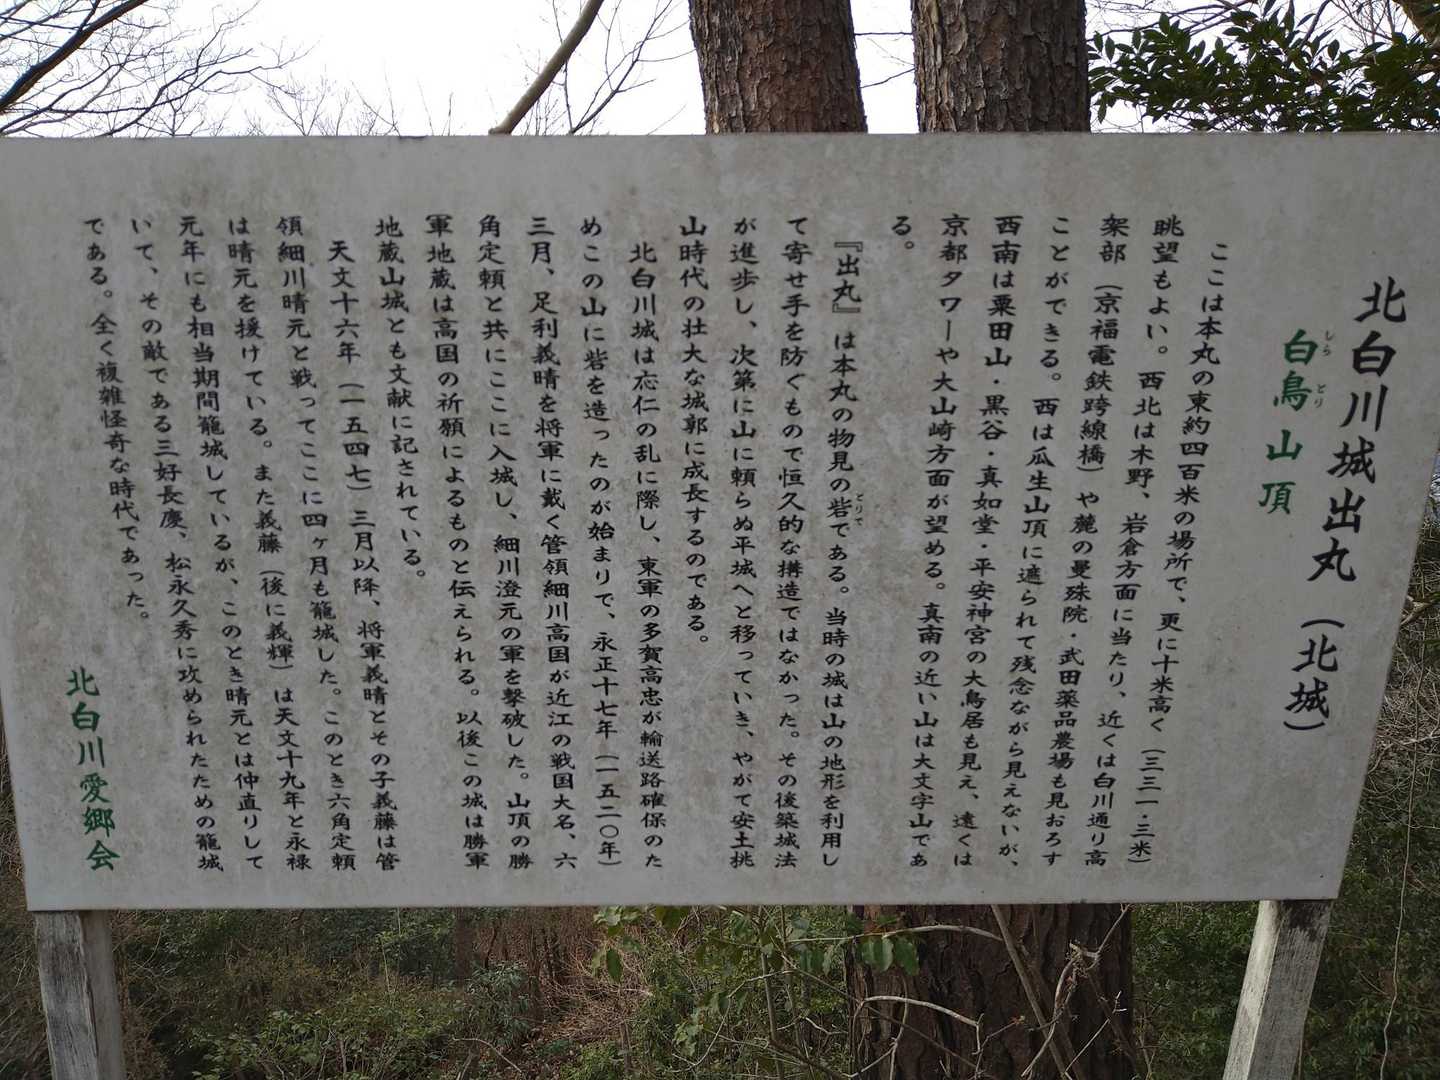 北白川城出丸(北城)
白鳥山頂
しらとり
ここは本丸の東約四百米の場所で、更に十米高く(三三一・三米)
眺望もよい。西北は木野、岩倉方面に当たり、近くは白川通り高
架部(京福電鉄跨線橋)や麓の曼殊院・武田薬品農場も見おろす
ことができる。西は瓜生山頂に遮られて残念ながら見えないが、
西南は粟田山・黒谷・真如堂・平安神宮の大鳥居も見え、遠くは
京都タワーや大山崎方面が望める。真南の近い山は大文字山であ
る。
『出丸』は本丸の物見の砦である。当時の城は山の地形を利用し
とりで
て寄せ手を防ぐもので恒久的な構造ではなかった。その後築城法
が進歩し、次第に山に頼らぬ平城へと移っていき、やがて安土桃
山時代の壮大な城郭に成長するのである。
北白川城は応仁の乱に際し、東軍の多賀高忠が輸送路確保のた
めこの山に砦を造ったのが始まりで、永正十七年(一五二〇年)
三月、足利義晴を将軍に戴く管領細川高国が近江の戦国大名、六
角定頼と共にここに入城し、細川澄元の軍を撃破した。山頂の勝
軍地蔵は高国の祈願によるものと伝えられる。以後この城は勝軍
地蔵山城とも文献に記されている。
天文十六年(一五四七)三月以降、将軍義晴とその子義藤は管
領細川晴元と戦ってここに四ヶ月も籠城した。このとき六角定頼
は晴元を援けている。また義藤(後に義輝)は天文十九年と永禄
元年にも相当期間籠城しているが、このとき晴元とは仲直りして
いて、その敵である三好長慶、松永久秀に攻められたための籠城
である。全く複雑怪奇な時代であった。
北白川愛郷会